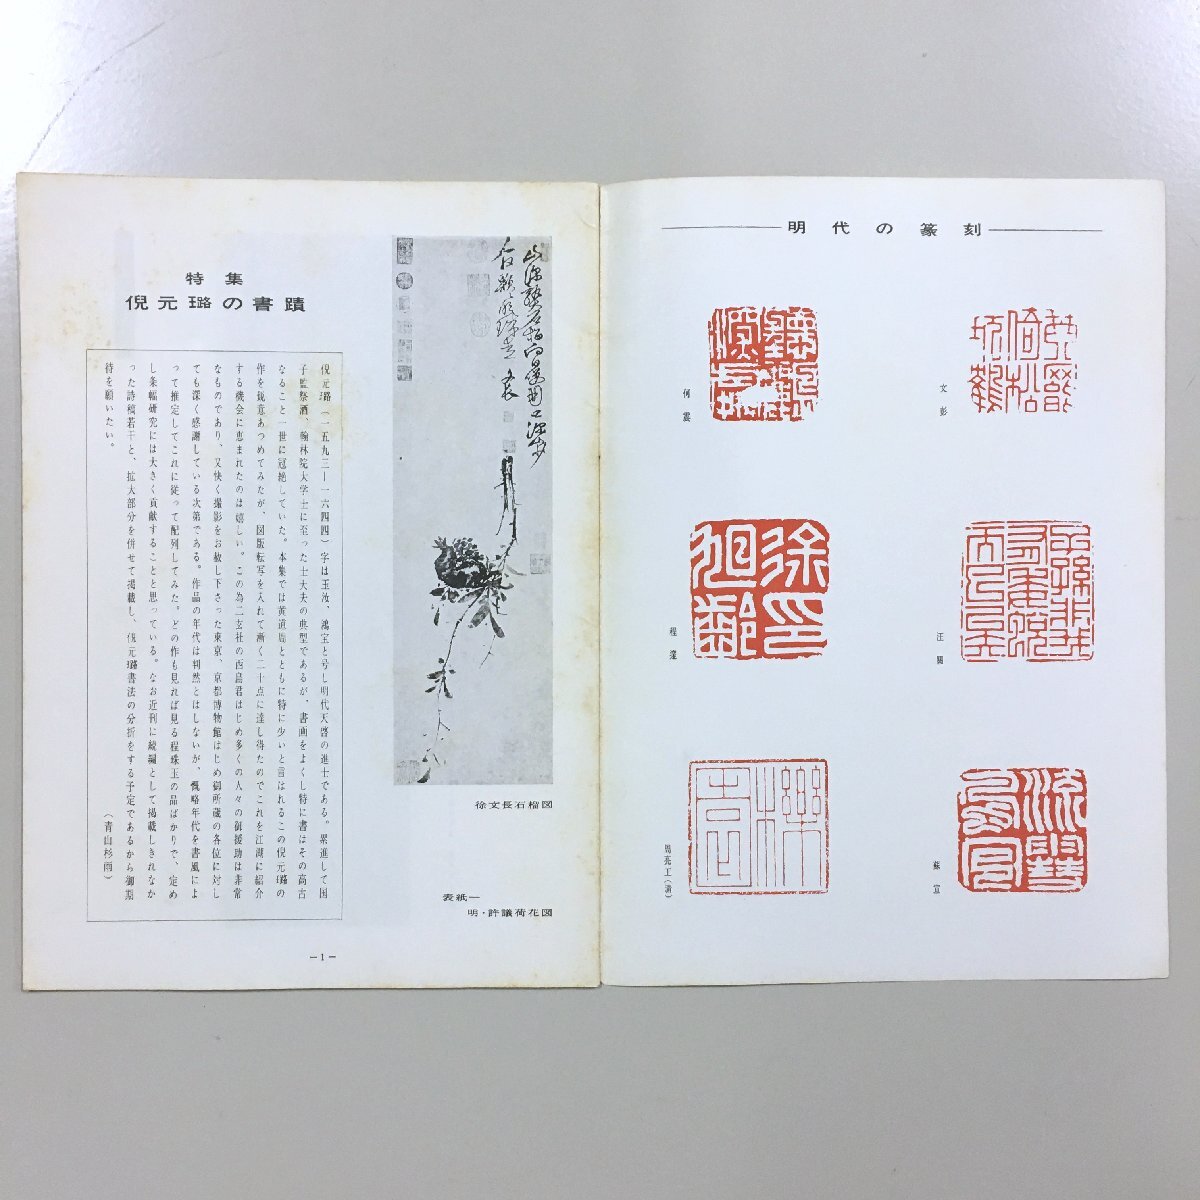 明代の篆刻
文彭
何震
汪關
程邃
蘇宣
周亮工(清)
特集
倪元璐の書蹟
倪元璐(一五九三―一六四四)字は玉汝、鴻宝と号し明代天啓の進士である。累進して国
子監祭酒、翰林院大学士に至った士大夫の典型であるが、書画をよくし特に書はその高古
なること一世に冠絶していた。本集では黄道周とともに特に少いと言はれるこの倪元璐の
作を鋭意あつめてみたが、図版転写を入れて漸く二十点に達し得たのでこれを江湖に紹介
する機会に恵まれたのは嬉しい。この為二玄社の西島君はじめ多くの人々の御援助は非常
なものであり、又快く撮影をお赦し下さった東京、京都博物館はじめ御所蔵の各位に対し
ても深く感謝している次第である。作品の年代は判然とはしないが、慨略年代を書風によ
って推定してこれに従って配列してみた。どの作も見れば見る程珠玉の品ばかりで、定め
し条幅研究には大きく貢献することと思っている。なお近刊に続編として掲載しきれなか
った詩稿若干と、拡大部分を併せて掲載し、倪元璐書法の分析をする予定であるから御期
待を願いたい。
(青山杉雨)
徐文長石榴図
表紙―
明・許議荷花図
―1―